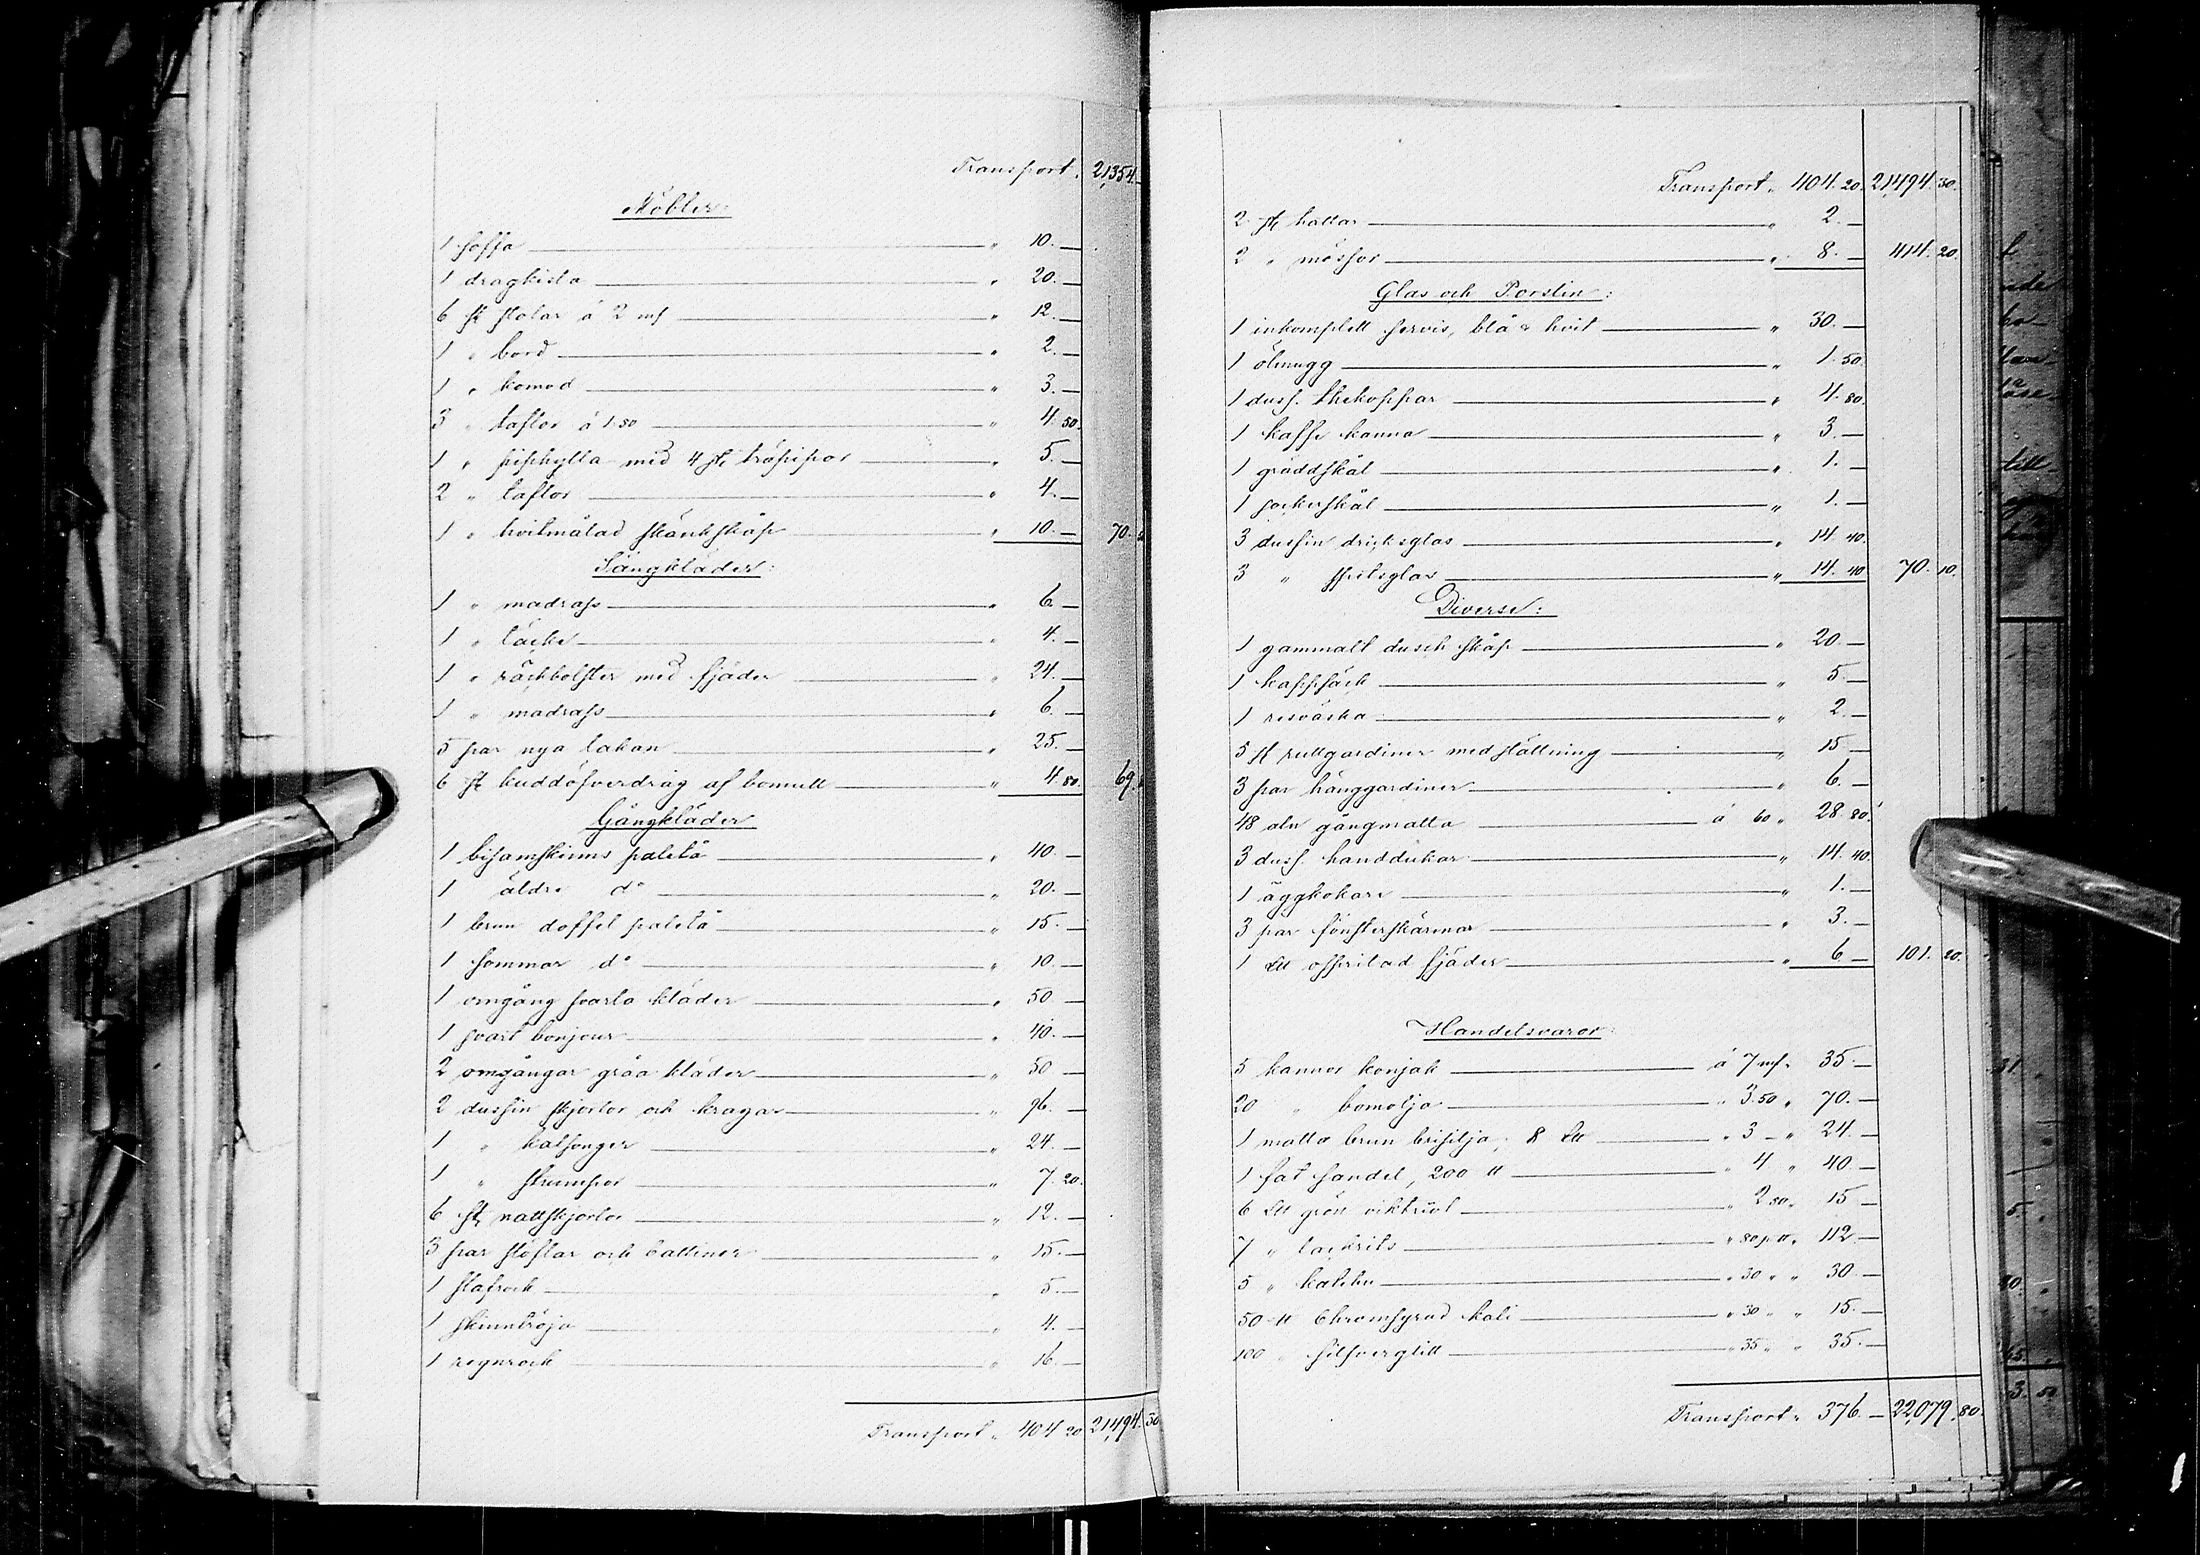 Transport. 21,354.—
Möbler:
1 soffa — " 10.—
1 dragkista — " 20.—
6 st stolar á 2 mf — " 12.—
1 " bord — " 2.—
1 " komod — " 3.—
3 " taflor á 1.50 — " 4.50.
1 " piphylla med 4 st. träpipor — " 5.—
2 " taflor — " 4.—
1 " hvitmålad skänkskåp — " 10.— 70.
Sängkläder:
1 " madrass — " 6.—
1 " täcke — " 4.—
1 " räckbolster med fjäder — " 24.—
1 " madrass — " 6.—
5 par nya lakan — " 25.—
6 st kuddöfverdrag af bomull — " 4.80. 69.
Gångkläder
1 bisamskinns paletå — " 40.—
1 äldre d° — " 20.—
1 brun doffel paletå — " 15.—
1 sommar d° — " 10.—
1 omgång svarta kläder — " 50.—
1 svart bonjour — " 40.—
2 omgångar gråa kläder — " 50.—
2 dussin skjortor och kragar — " 96.—
1 " kalsonger — " 24.—
1 " strumpor — " 7.20.
6 st nattskjortor — " 12.—
3 par stöflar och battiner — " 15.—
1 slafrock — " 5.—
1 skinntröja — " 4.—
1 regnrock — " 16.—
Transport " 404 20 21,494.30
Transport " 404.20. 21,494.30.
2 st hattar — " 2.—
2 " mössor — " 8.— 414.20.
Glas och Porslin:
1 inkomplett servis, blå & hvit — " 30.—
1 ölmugg — " 1.50.
1 duss. thekoppar — " 4.80.
1 kaffe kanna — " 3.—
1 gräddskål — " 1.—
1 sockerskål — " 1.—
3 dussin dricksglas — " 14.40.
3 " spitsglas — " 14.40 70.10.
Diverse:
1 gammalt dusch skåp — " 20.—
1 kappsäck — " 5.—
1 resväska — " 2.—
5 st rullgardiner med ställning — " 15.—
3 par hänggardiner — " 6.—
48 aln gångmatta — á 60 " 28.80.
3 duss. handdukar — " 14.40.
1 äggkokare — " 1.—
3 par fönsterskärmar — " 3.—
1 L℔ ospritad fjäder — " 6.— 101.20.
Handelsvaror:
5 kannor konjak — á 7 mf " 35.—
20 " bomolja — " 3.50 " 70.—
1 matta brun brisilja, 8 L℔ — " 3 – " 24.—
1 fat sandel, 200 ℔ — " 4 " 40.—
6 L℔ grön viktriol — " 2 50 " 15.—
7 " lackrits — " 80 p. ℔ " 112.—
5 " katchu — " 30 " " 30.—
50 ℔ Chromsyrad kali — " 30 " " 15.—
100 " silfverglitt — " 35 " " 35.—
Transport " 376.— 22,079.80.